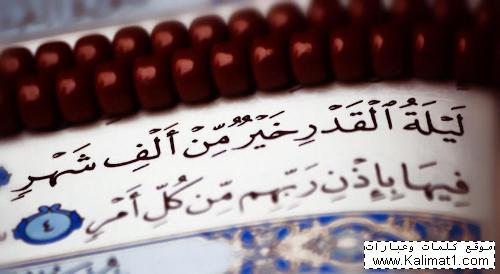 لَيْلَةُ ٱلْقَدْرِ خَيْرٌ مِّنْ أَلْفِ شَهْرٍ
فِيهَا بِإِذْنِ رَبِّهِم مِّن كُلِّ أَمْرٍ ٤
موقع كلمات وعبارات
www.Kalimat1.com